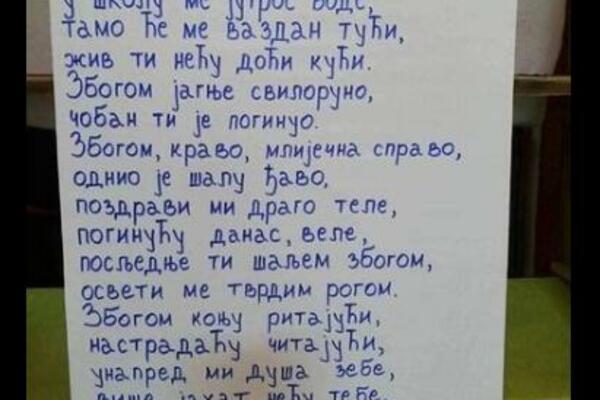 у школу ме јутрос воде,
тамо ће ме ваздан тући,
жив ти нећу доћи кући.
Збогом јагње свилоруно,
чобан ти је погинуо.
Збогом, краво, млијечна справо,
однио је шалу ђаво,
поздрави ми драго теле,
погинућу данас, веле,
посљедње ти шаљем збогом,
освети ме тврдим рогом.
Збогом коњу ритајући,
настрадаћу читајући,
унапред ми душа зебе,
више јахат нећу тебе.